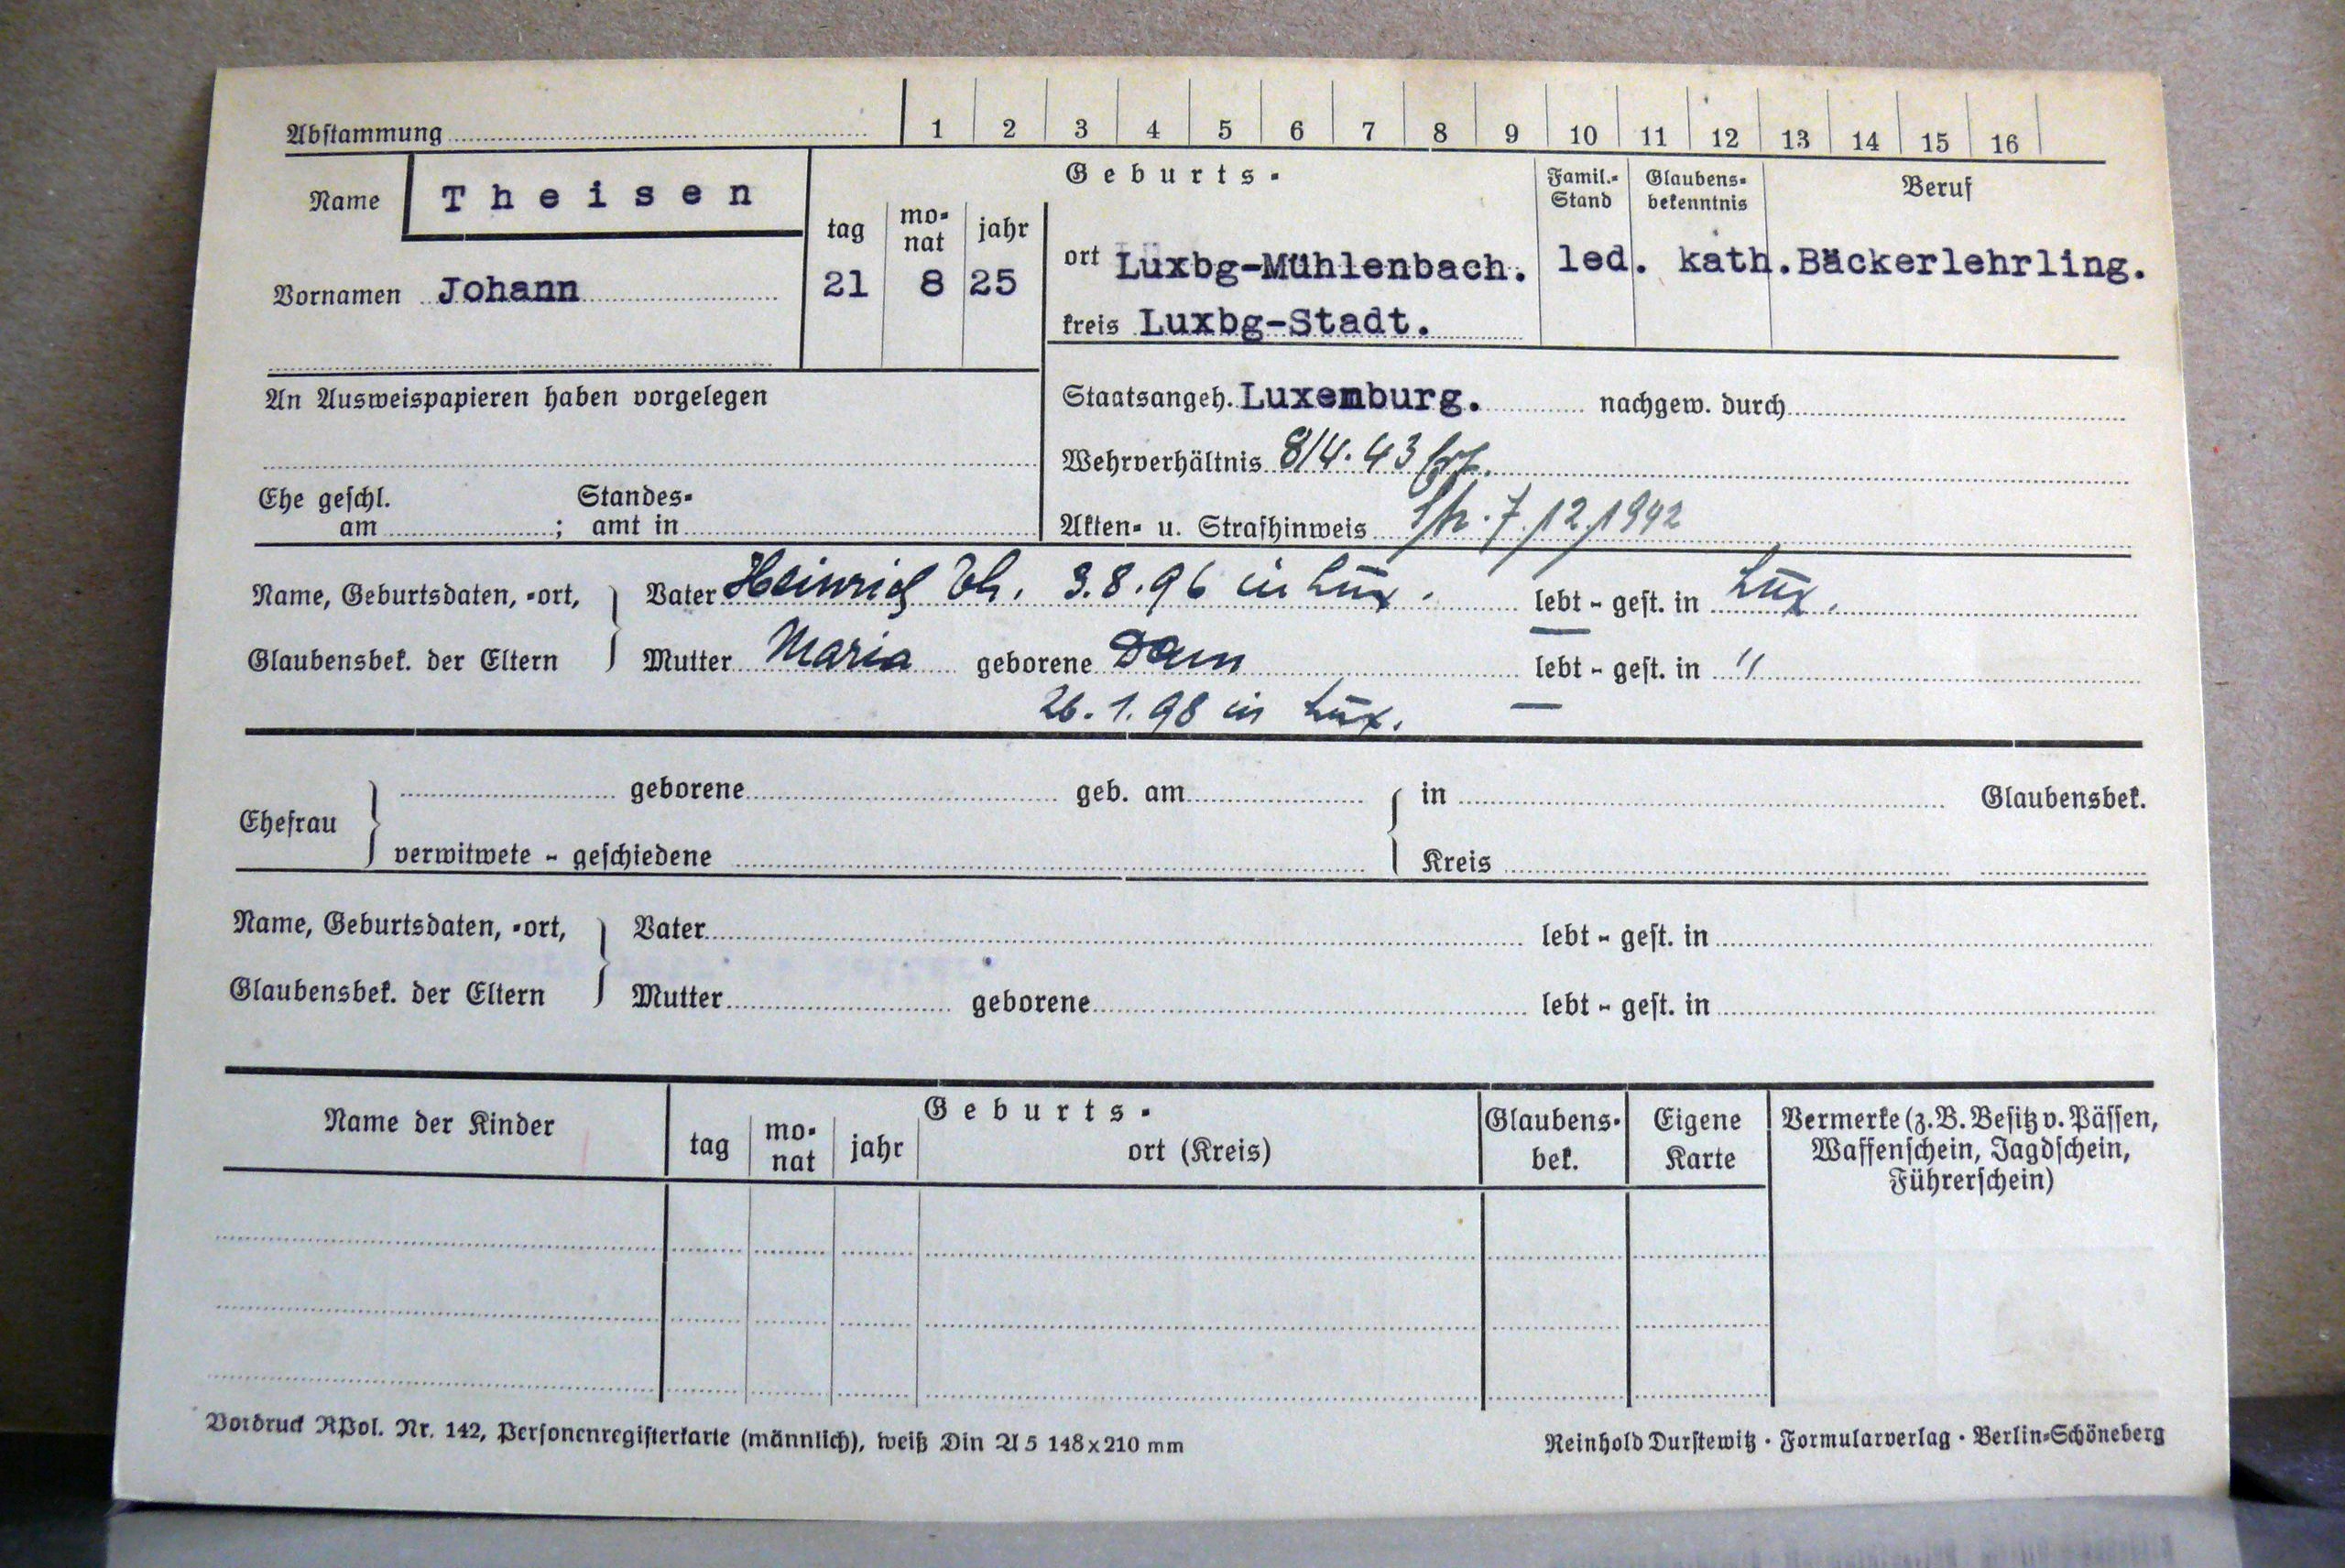 Abstammung 1 2 3 4 5 6 7 8 9 10 11 12 13 14 15 16
Name Theisen
Vornamen Johann
Geburts-
tag monat jahr
21 8 25
ort Luxbg-Mühlenbach.
kreis Luxbg-Stadt.
Famil.-Stand
led.
Glaubensbekenntnis
kath.
Beruf
Bäckerlehrling.
An Ausweispapieren haben vorgelegen
Staatsangeh. Luxemburg. nachgew. durch
Wehrverhältnis 8/4.43
Ehe geschl. am ; Standesamt in
Akten- u. Strafhinweis 7./12./1942
Name, Geburtsdaten, -ort,
Glaubensbek. der Eltern
Vater Heinrich Th. 3.8.96 in Lux. lebt - gest. in Lux.
Mutter Maria geborene Dam lebt - gest. in "
26.1.98 in Lux.
Ehefrau geborene geb. am in Glaubensbek.
verwitwete - geschiedene Kreis
Name, Geburtsdaten, -ort,
Glaubensbek. der Eltern
Vater lebt - gest. in
Mutter geborene lebt - gest. in
Name der Kinder
Geburts-
tag monat jahr ort (Kreis)
Glaubensbek.
Eigene Karte
Vermerke (z.B. Besitz v. Pässen,
Waffenschein, Jagdschein,
Führerschein)
Vordruck RPol. Nr. 142, Personenregisterkarte (männlich), weiß Din A 5 148x210 mm
Reinhold Durstewitz · Formularverlag · Berlin-Schöneberg